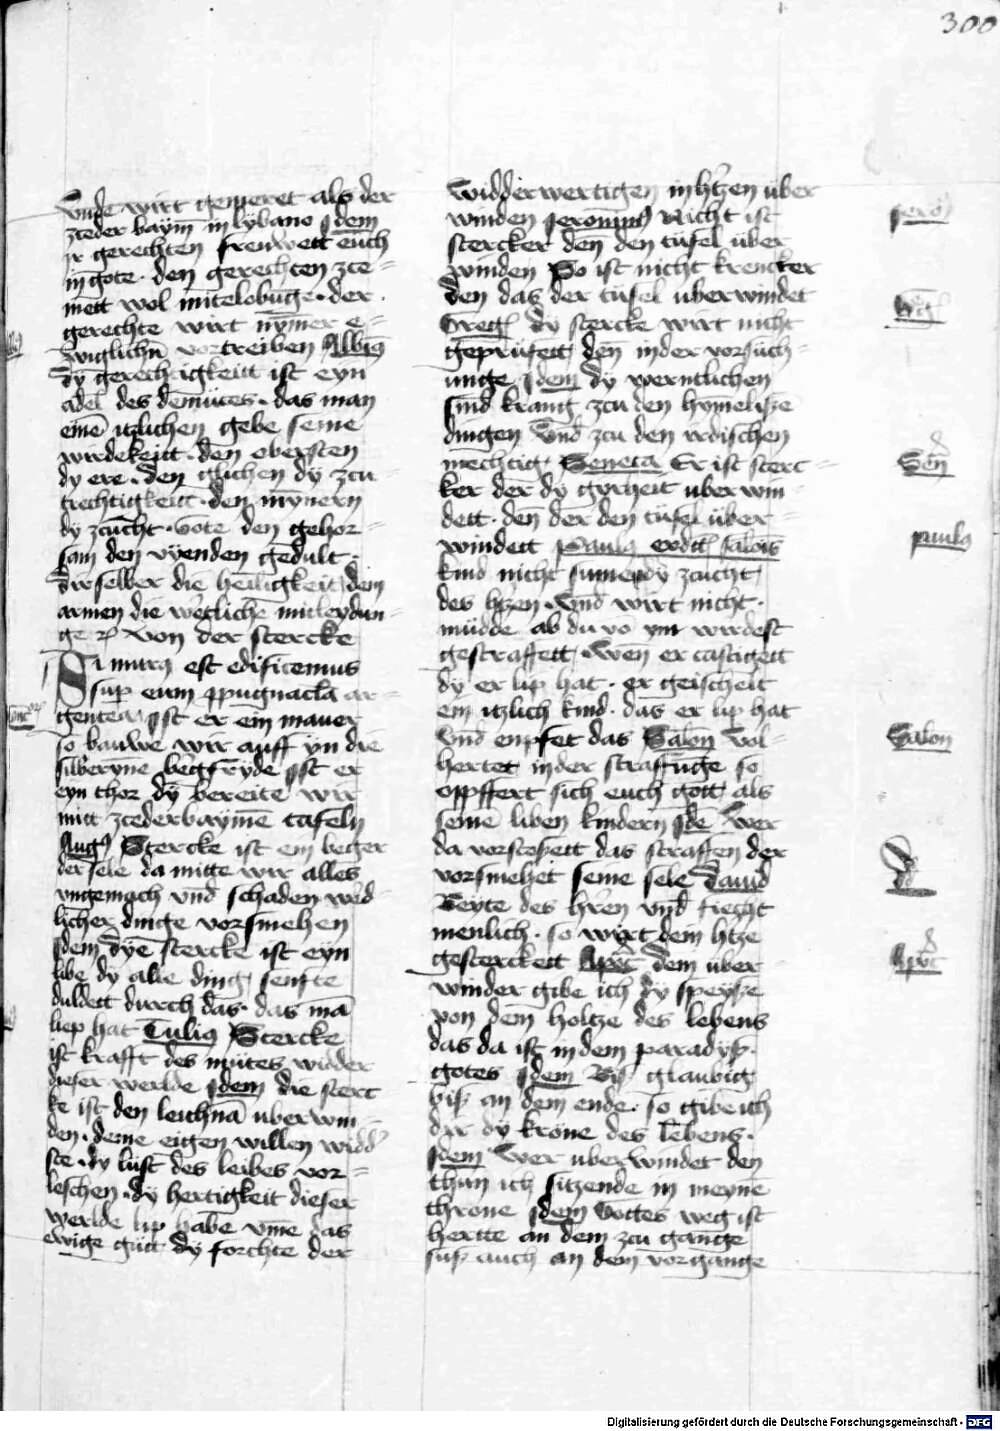 300
vnde wirt gemeret als der
zceder baym in lybano Jdem
ir gerechten frenwett euch
in gote · den gerechten zce=
mett wol mitelobunge · der
gerechte wirt nymer e=
wiglichn vortreiben Albius
dy gerechtigkeitt ist eyn
adel des demutes · das man
eine itzlichen gebe seine
wirdekeitt · den obersten
dy ere · den glichen dy zcu
trechtigkeitt · den mynern
dy zcucht · gote den gehor=
sam den vyenden gedult ·
dir selber die heiligkeit dem
armen die wegliche mitleydun=
ge von der stercke
Si murus est edificemus
sup eum ppugnacla ar=
gentea Jst er ein mauer
so bauwe wir auff yn die
silberyne bergfryde Jst er
eyn thor dy bereite wir
mitt zcederbayme tafeln
Augus Stercke ist ein beger
der sele da mitte wir alles
vngemach vnd schaden werd=
licher dinge vorsmehen
Jdem dye stercke ist eyn
libe dy alle ding senfte
duldett durch das · das ma
liep hat Tulius Stercke
ist krafft des mutes widder
dieser werlde Jdem die sterc
ke ist den leichna uberwin=
den · deine eigen willen widd
ste · dy lust des leibes vor=
leschen · dy hertigkeit dieser
werlde lip habe vme das
ewige gutt dy forchte der
widderwertigen in htzen uber
winden Jeronimus Nicht ist
stercker den den tufel uber
winden So ist nicht krencker
den das der tufel uberwindet
Greg dy stercke wirt nicht
gepruefett den in der vorsuch=
unge Jdem dy werntlichen
sind kranck zcu den hymelisze
dingen vnd zcu den irdischen
mechtig Seneca Er ist sterc=
ker der dy gyrheit uberwin=
dett · den der den tufel uber=
windett Paulus erdt salois
kind nicht sume dy zcucht
des htzen · vnd wirt nicht ·
mudde ab du vo ym wirdest
gestraffett · wen er castigett
dy er lip hat · er geischelt
ein itzlich kind · das er lip hat
vnd enpfet das Salon vol=
hertet in der straffuge so
oppffert sich euch gott als
seine liben kindern Jde wer
da vorstoszett das straffen der
vorsmehet seine sele dauid
Beyte des hren vnd ficcht
menlich · so wirt dem htze
gesterckett Apoc dem uber=
winder gibe ich dy speysze
von dem holtze des lebens
das da ist in dem paradysz ·
gotes Jdem Bisz glaubig
bisz an dem ende · so gibe ich
dir dy krone des lebens ·
Jdem wer uberwindet den
thun ich sitzende in meyne
throne Jdem Gottes weg ist
hertte an dem zcu gange
susz auch an dem vorgange
Jero
Greg
Sen
paulus
Salon
dd
Apoc
Digitalisierung gefördert durch die Deutsche Forschungsgemeinschaft - DFG